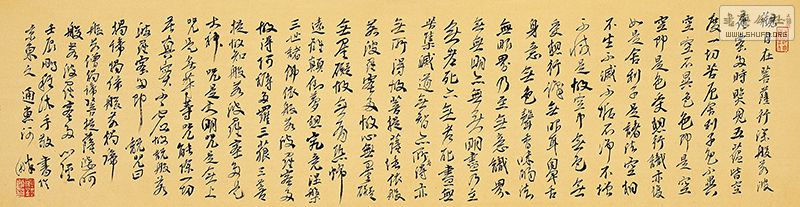 觀自在菩薩行深般若波
羅蜜多時照見五蘊皆空
度一切苦厄舍利子色不異
空空不異色色即是空
空即是色受想行識亦復
如是舍利子是諸法空相
不生不滅不垢不淨不增
不減是故空中無色無
受想行識無眼耳鼻舌
身意無色聲香味觸法
無眼界乃至無意識界
無無明亦無無明盡乃至
無老死亦無老死盡無
苦集滅道無智亦無得
無所得故菩提薩埵依般
若波羅蜜多故心無罣礙
無罣礙故無有恐怖
遠離顛倒夢想究竟涅槃
三世諸佛依般若波羅蜜多
故得阿耨多羅三藐三菩
提故知般若波羅蜜多是
大神咒是大明咒是無上
咒是無等等咒能除一切
苦真實不虛故說般若
波羅蜜多咒即說咒曰
揭諦揭諦般若揭諦
般若僧揭諦菩提薩婆訶
般若波羅蜜多心經
壬辰